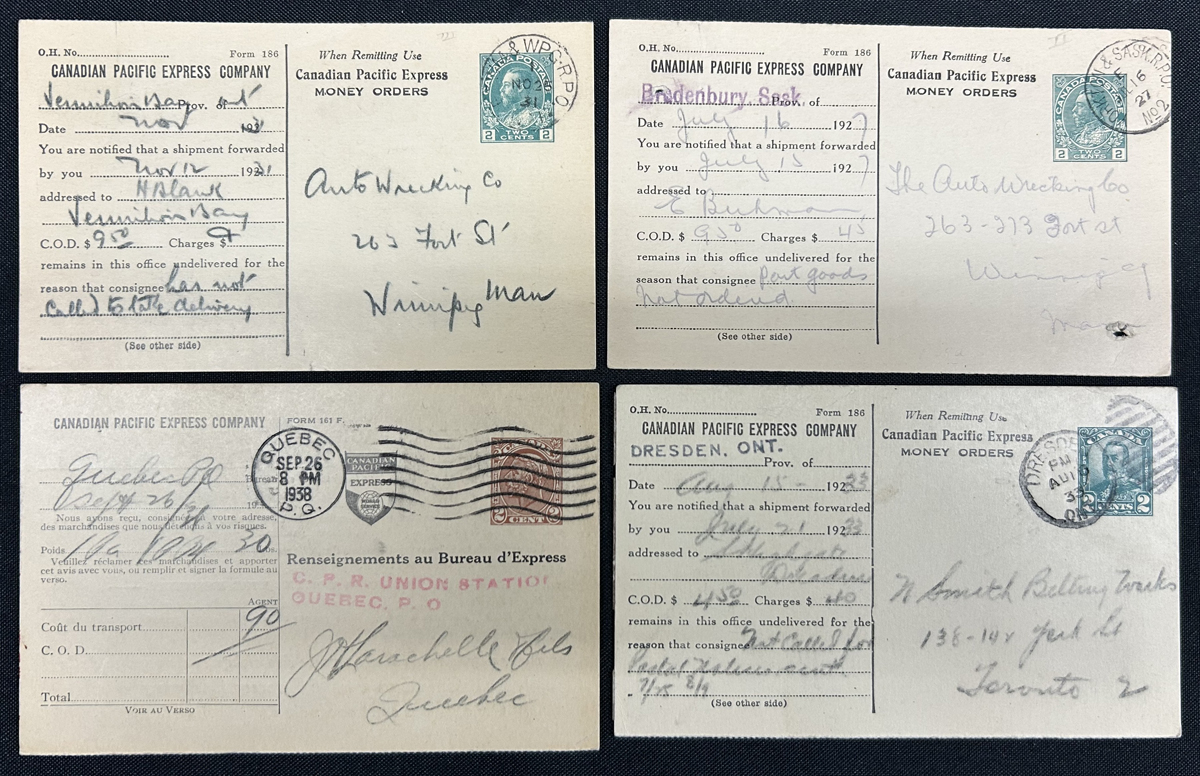 O.H. No. Form 186
CANADIAN PACIFIC EXPRESS COMPANY
Vermilion Bay Prov. of Ont
Date Nov 1931
You are notified that a shipment forwarded
by you Nov 12 1931
addressed to H Blank
Vermilion Bay
C.O.D. $ 9.50 Charges $
remains in this office undelivered for the
reason that consignee has not
called to take delivery
(See other side)
When Remitting Use
Canadian Pacific Express
MONEY ORDERS
& WPG. R.P.O.
NO 2
31
CANADA POSTAGE
2 TWO CENTS 2
Auto Wrecking Co
263 Fort St
Winnipeg Man
O.H. No. Form 186
CANADIAN PACIFIC EXPRESS COMPANY
Bredenbury, Sask. Prov. of
Date July 16 1927
You are notified that a shipment forwarded
by you July 15 1927
addressed to
E Buhman
C.O.D. $ 9.50 Charges $ 45
remains in this office undelivered for the
reason that consignee part goods
not ordered
(See other side)
When Remitting Use
Canadian Pacific Express
MONEY ORDERS
& SASK. R.P.O.
16
27
No 2
CANADA POSTAGE
2 TWO CENTS 2
The Auto Wrecking Co
263-273 Fort St
Winnipeg
Man
CANADIAN PACIFIC EXPRESS COMPANY
FORM 161 F.
Quebec PQ
Bureau
Sept 26/38 19
Nous avons reçu, consignés à votre adresse,
des marchandises que nous détenons à vos risques.
Poids 30
Veuillez réclamer ces marchandises et apporter
cet avis avec vous, ou remplir et signer la formule au
verso.
AGENT
Coût du transport 90
C. O. D.
Total
VOIR AU VERSO
QUEBEC
SEP 26
8 PM
1938
P.Q.
CANADIAN
PACIFIC
EXPRESS
WORLD
SERVICE
2 CENTS 2
Renseignements au Bureau d'Express
C. P. R. UNION STATION
QUEBEC, P. Q
J B Larochelle & Fils
Quebec
O.H. No. Form 186
CANADIAN PACIFIC EXPRESS COMPANY
DRESDEN, ONT.
Prov. of
Date Aug 15 - 1933
You are notified that a shipment forwarded
by you July 21 1933
addressed to
C.O.D. $ 4.50 Charges $ 40
remains in this office undelivered for the
reason that consignee Not Called for
7/25 8/9
(See other side)
When Remitting Use
Canadian Pacific Express
MONEY ORDERS
DRESDEN
PM
AU
33
ONT
CANADA
2 CENTS 2
N Smith Belting Works
138-142 York St
Toronto 2